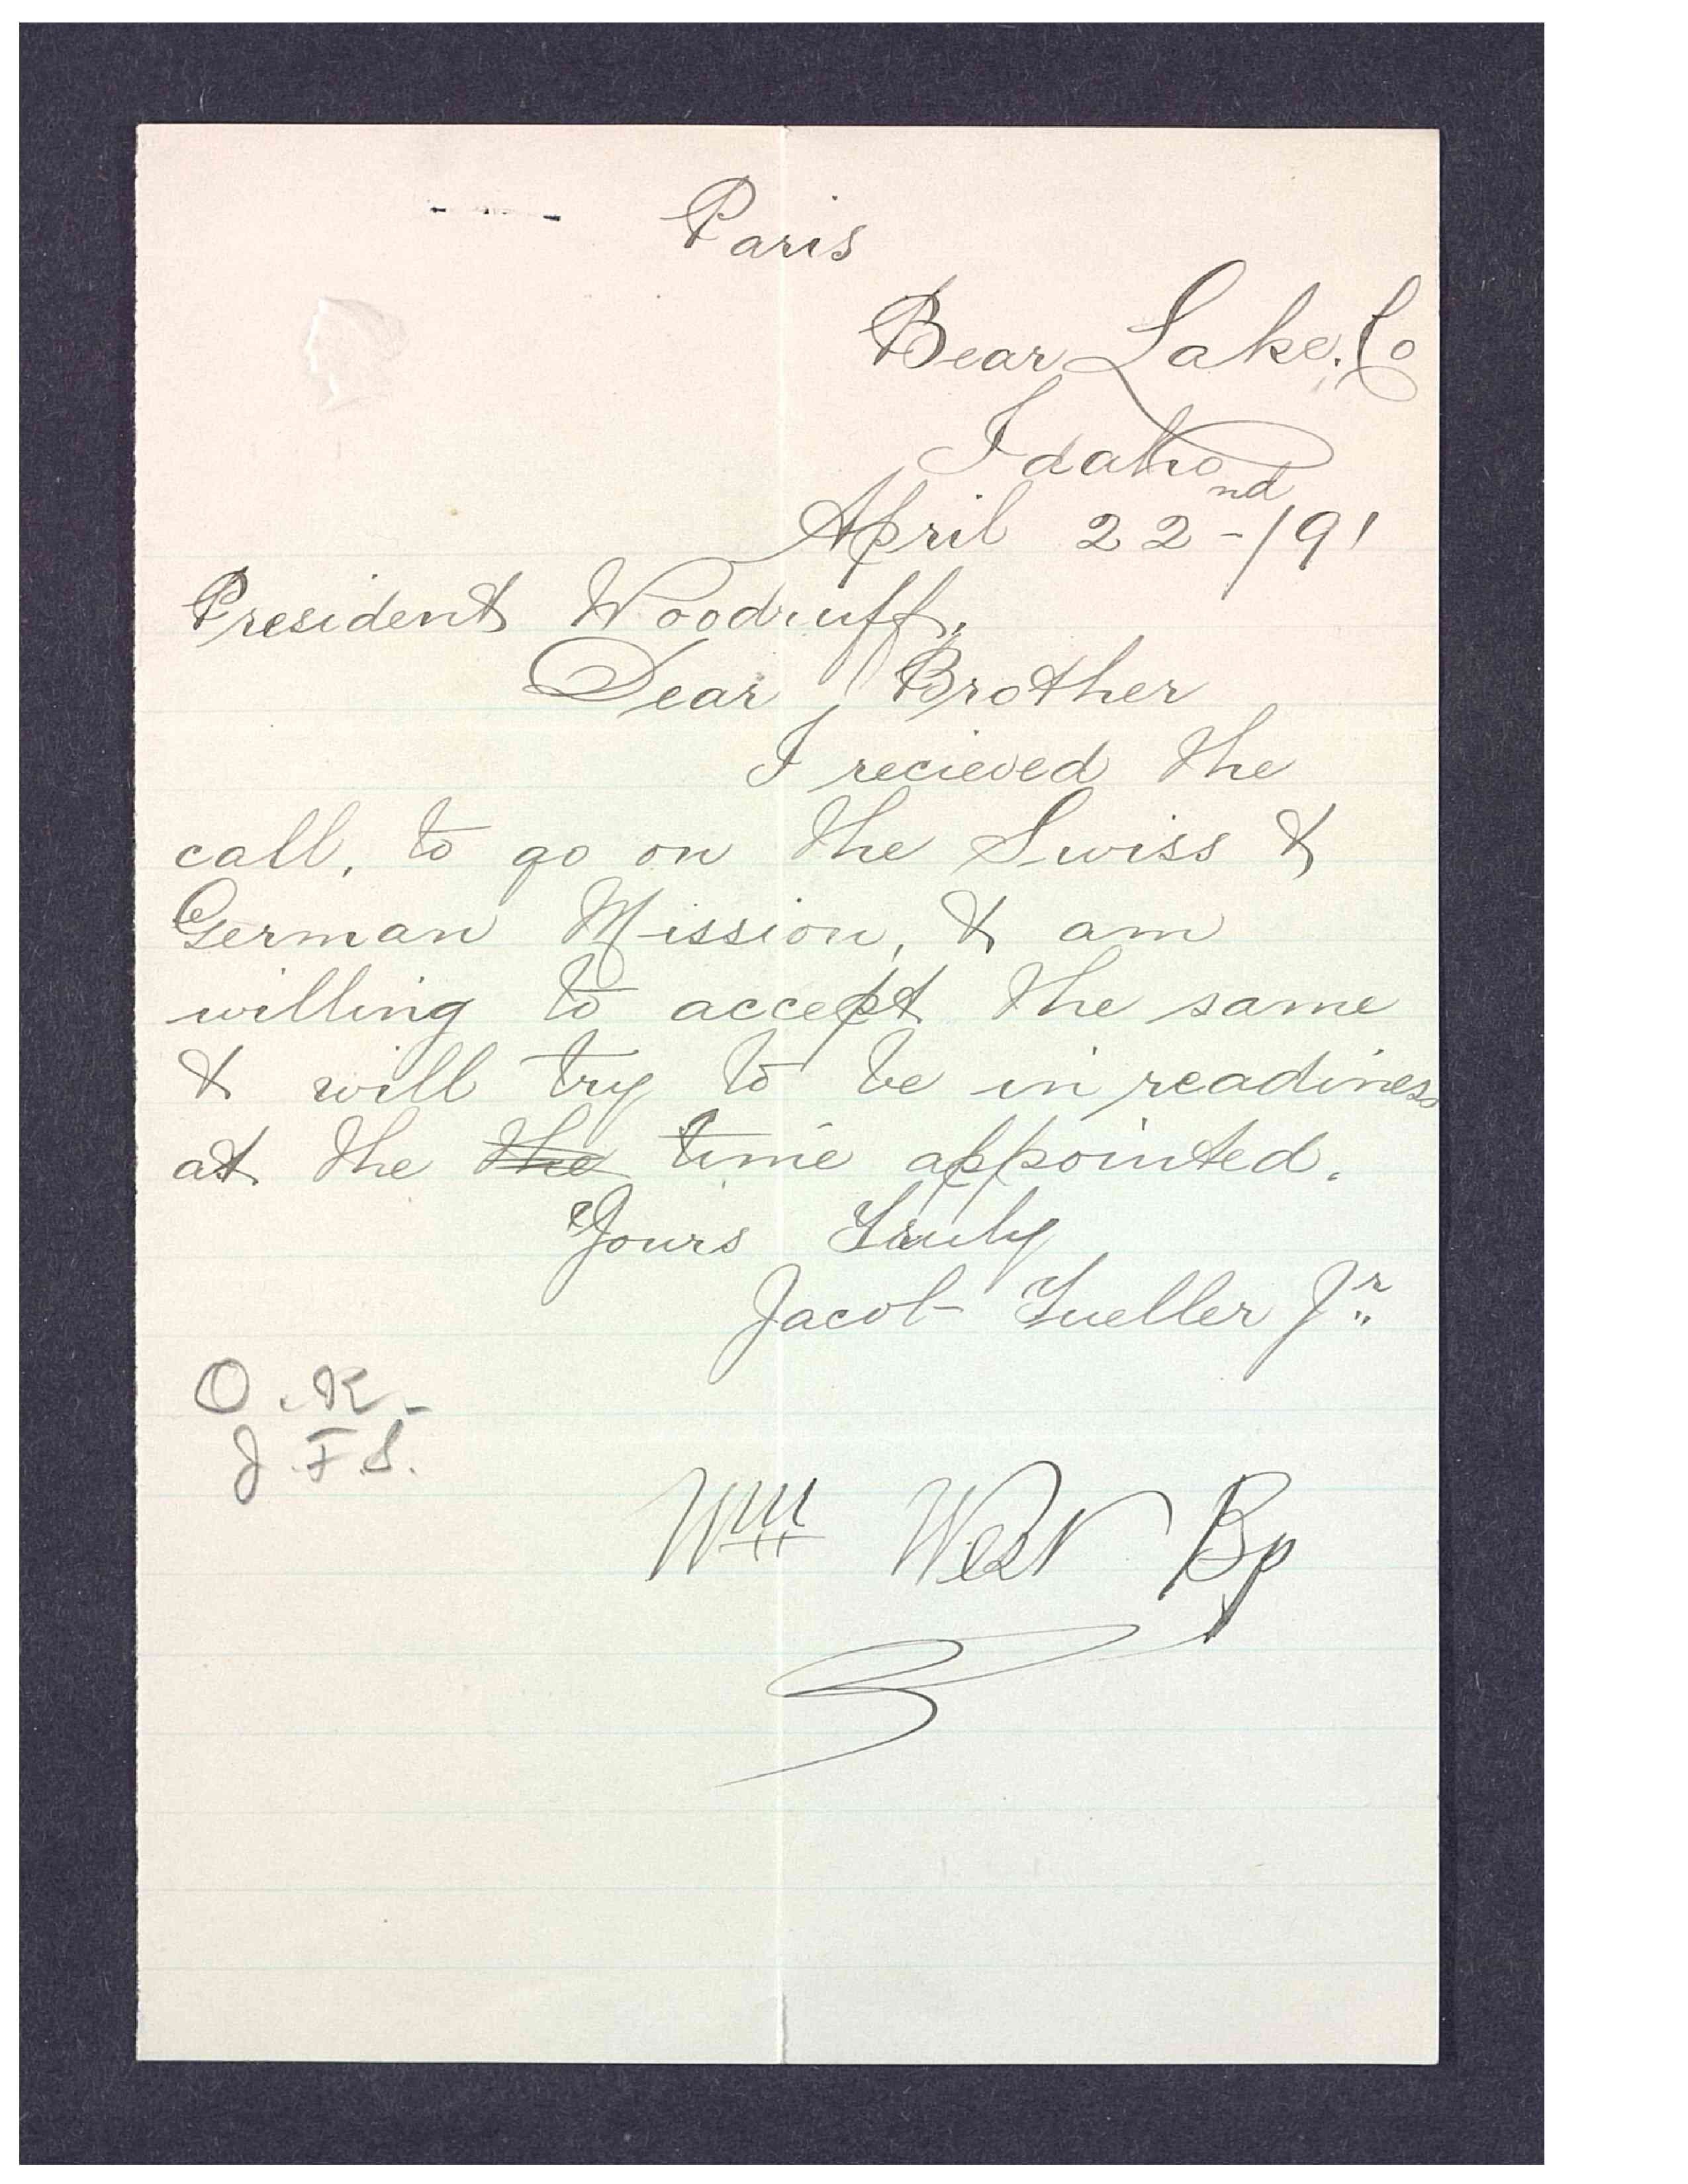 Paris
Bear Lake, Co
Idaho
April 22nd-/91
President Woodruff,
Dear Brother
I recieved the
call, to go on the Swiss &
German Mission, & am
willing to accept the same
& will try to be in readiness
at the the time appointed.
Yours Truly
Jacob Tueller Jr.
O.K.
J.F.S.
Wm West Bp